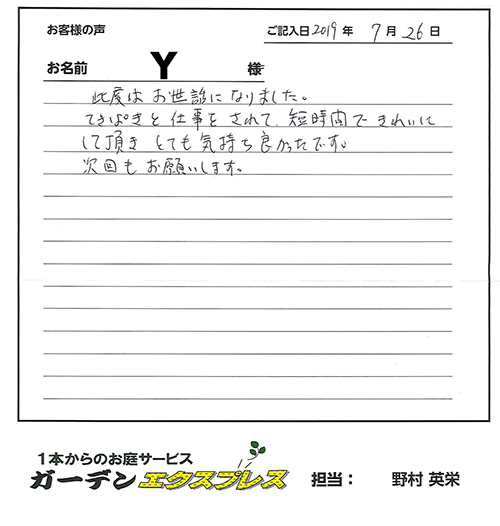 お客様の声
ご記入日2019年 7月26日
お名前 Y 様
此度はお世話になりました。
てきぱきと仕事をされて、短時間できれいに
して頂きとても気持ち良かったです。
次回もお願いします。
1本からのお庭サービス
ガーデンエクスプレス 担当： 野村 英栄